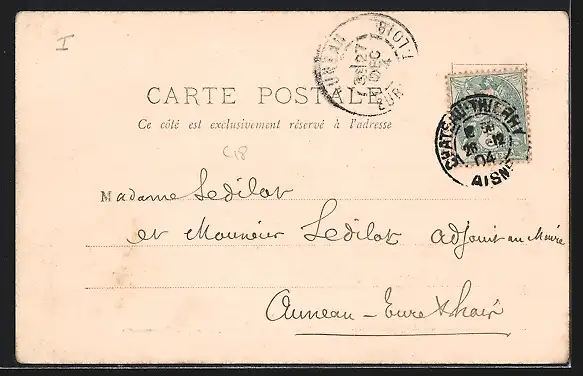 I
AUNEAU
27
DEC
CARTE POSTALE
Ce côté est exclusivement réservé à l'adresse
CHATEAU-THIERRY
26 12
04
AISNE
C18
Madame Ledilot
et Monsieur Ledilot adjoint au Maire
Auneau - Eure & Loir